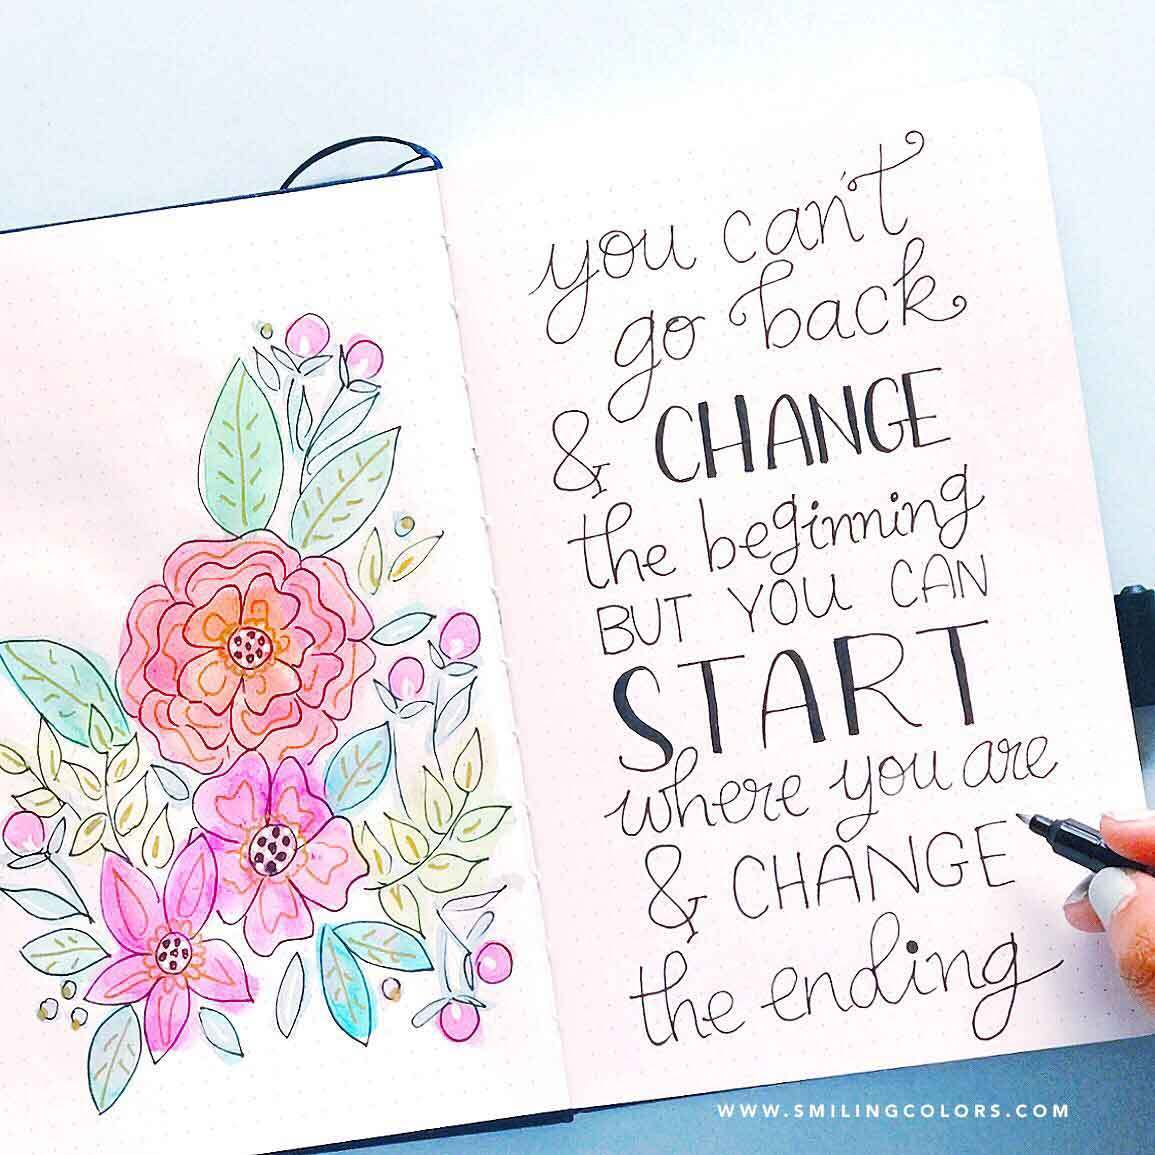 you can't
go back
& CHANGE
the beginning
BUT YOU CAN
START
where you are
& CHANGE
the ending
WWW.SMILINGCOLORS.COM